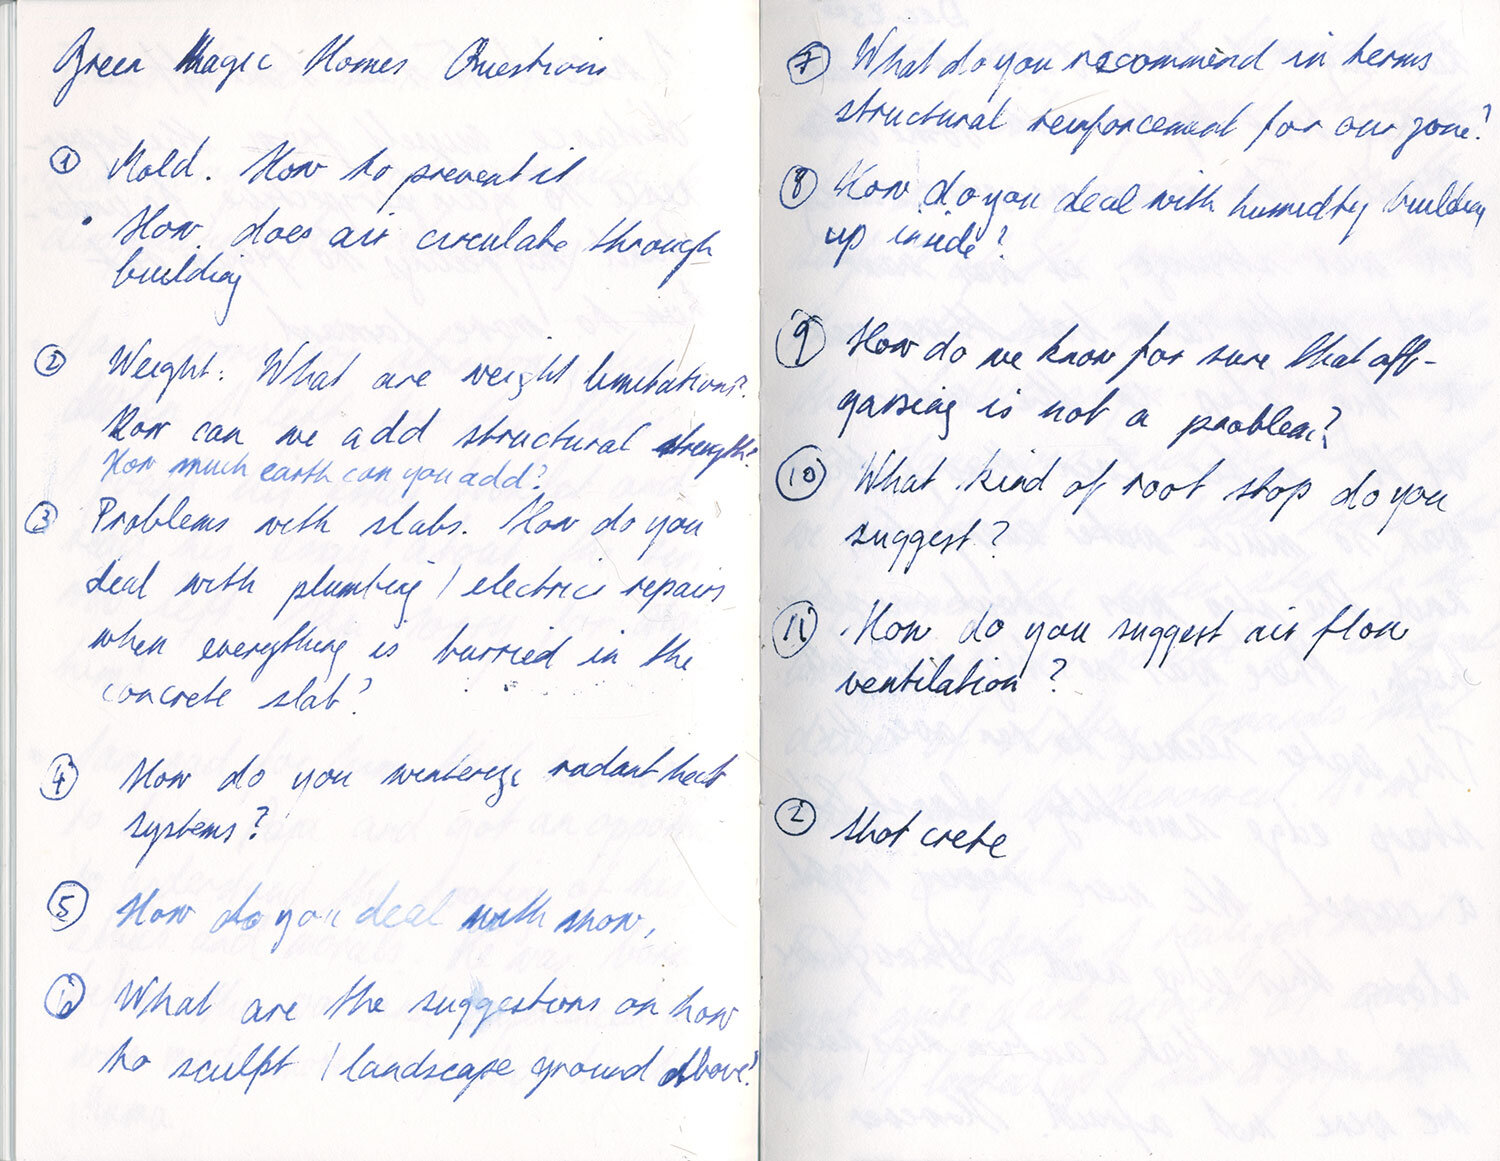 Green Magic Homes Questions
① Mold. How to prevent it
• How does air circulate through
building
② Weight: What are weight limitations?
How can we add structural strength?
How much earth can you add?
③ Problems with slabs. How do you
deal with plumbing / electric repairs
when everything is burried in the
concrete slab?
④ How do you winterize radiant heat
systems?
⑤ How do you deal with snow,
⑥ What are the suggestions on how
to sculpt / landscape ground above?
⑦ What do you recommend in terms
structural reinforcement for our zone?
⑧ How do you deal with humidity building
up inside?
⑨ How do we know for sure that off-
gassing is not a problem?
⑩ What kind of root stop do you
suggest?
⑪ How do you suggest air flow
ventilation?
② shot crete